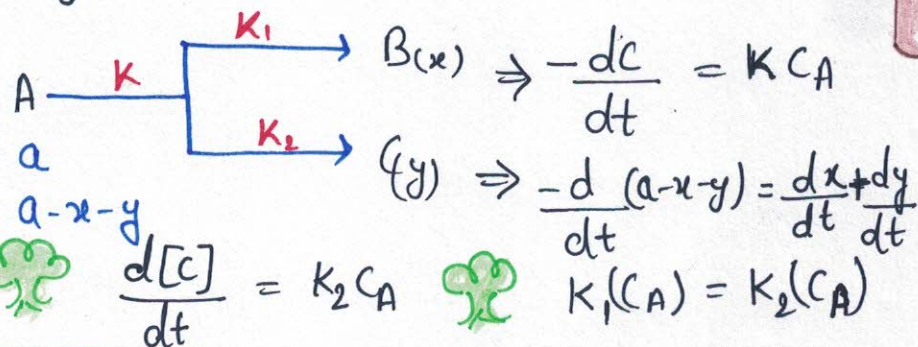 K₁
B(x) ⇒ -dc/dt = K C_A
A K
K₂
C(y) ⇒ -d/dt (a-x-y) = dx/dt + dy/dt
a
a-x-y
d[c]/dt = K₂ C_A
K₁(C_A) = K₂(C_A)